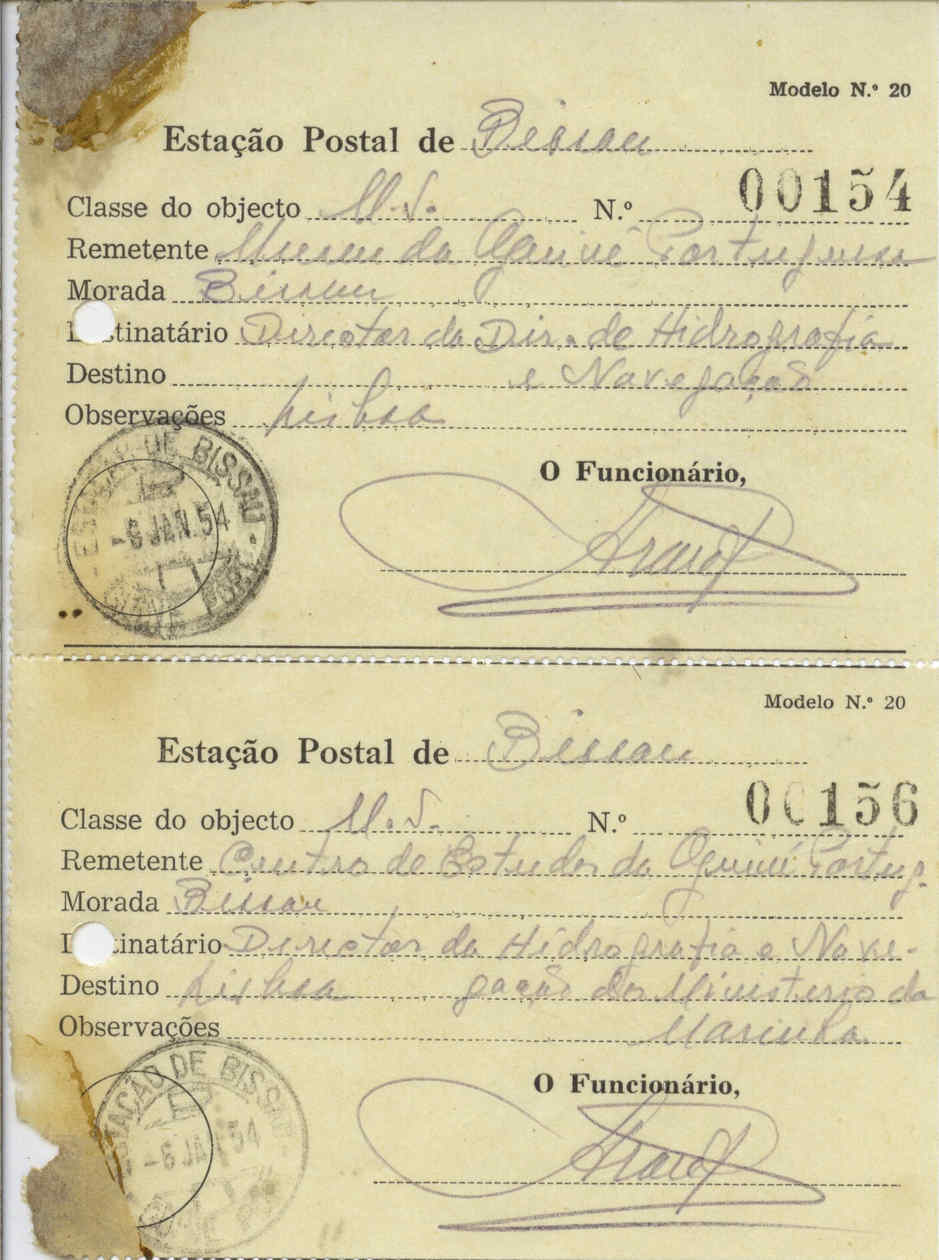 Modelo N.º 20
Estação Postal de Bissau
Classe do objecto M.S. N.º 00154
Remetente Museu da Guiné Portuguesa
Morada Bissau
D tinatário Director da Dir. de Hidrografia
Destino e Navegação
Observações Lisboa
ESTAÇÃO DE BISSAU
-6 JAN.54
O Funcionário,
Modelo N.º 20
Estação Postal de Bissau
Classe do objecto M.S. N.º 00156
Remetente Centro de Estudos da Guiné Portug.
Morada Bissau
D tinatário Director da Hidrografia e Nave-
Destino Lisboa gação do Ministerio da
Observações Marinha
ESTAÇÃO DE BISSAU
-6 JAN 54
O Funcionário,